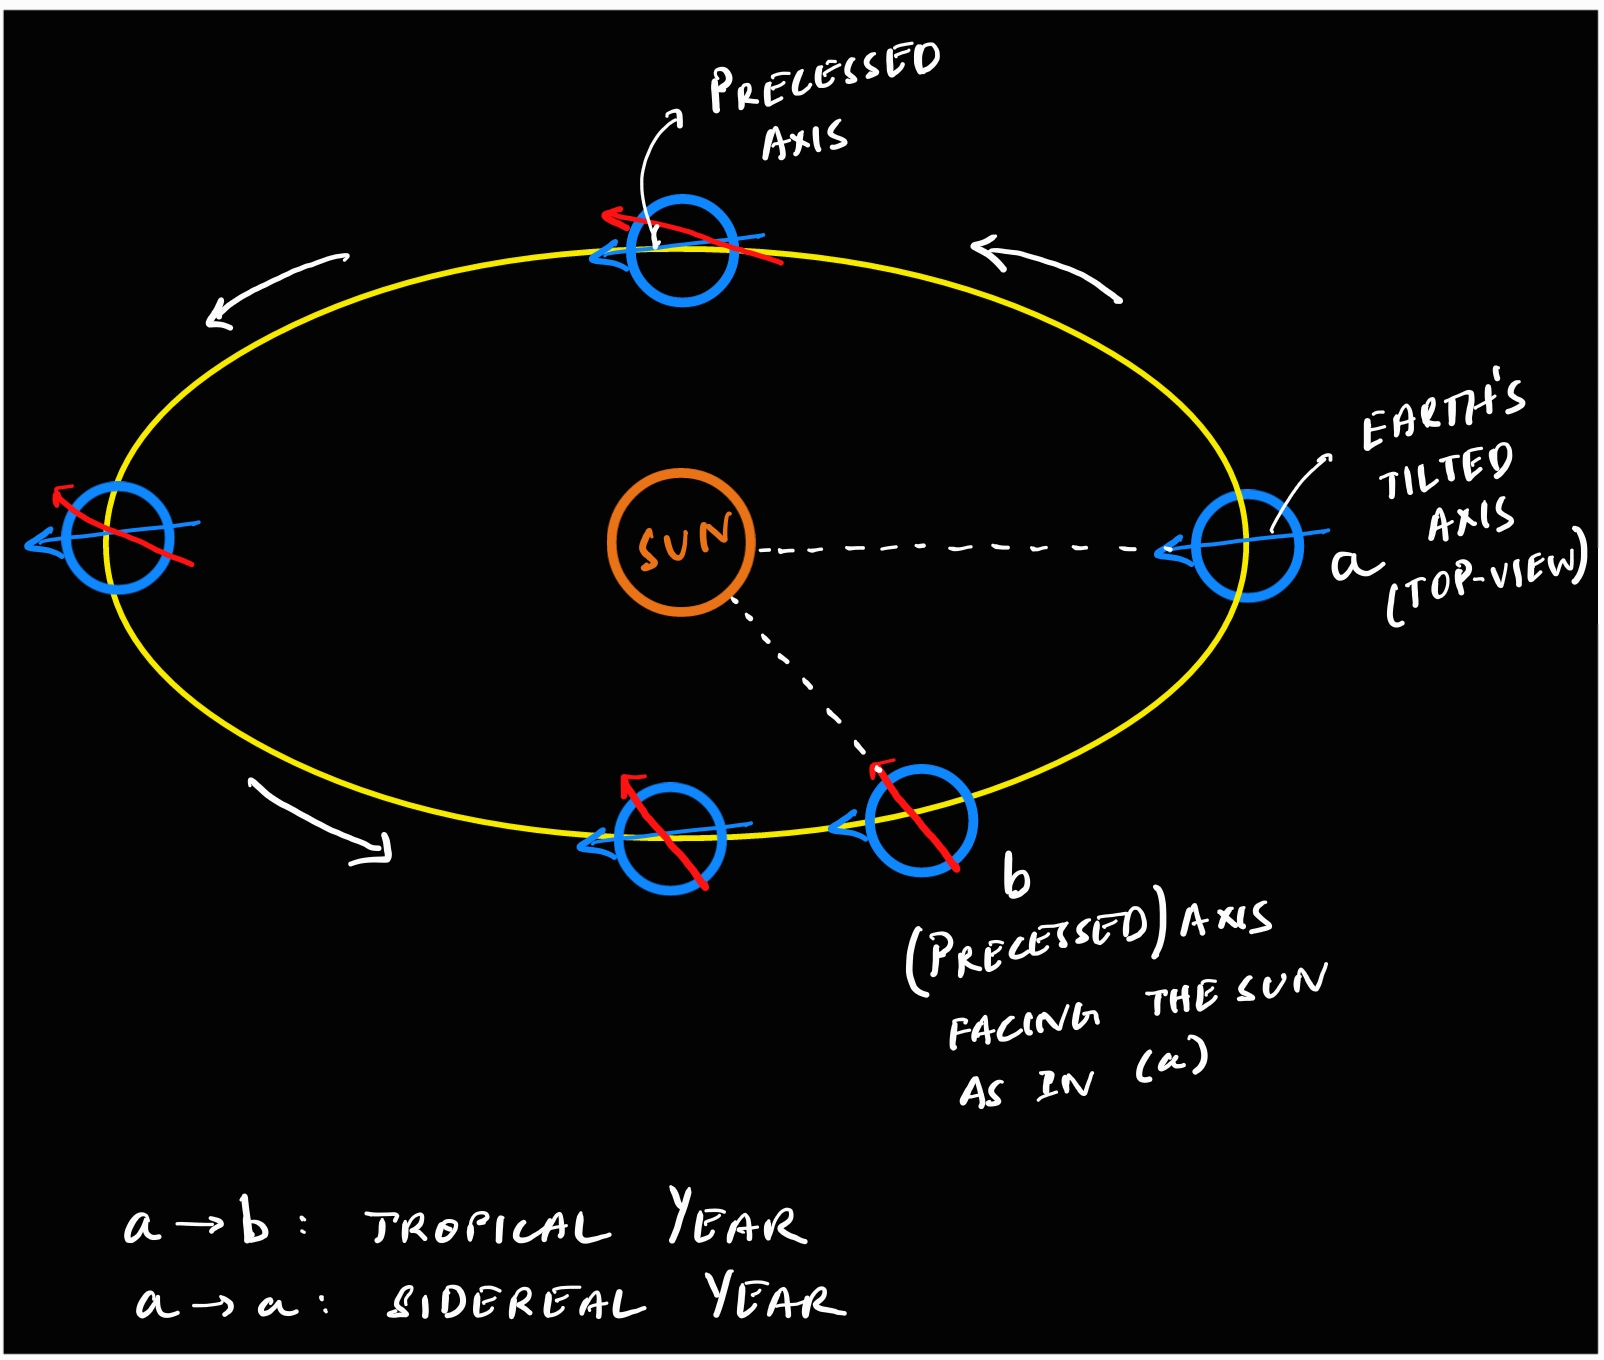 PRECESSED
AXIS
EARTH'S
TILTED
AXIS
(TOP-VIEW)
a
SUN
b
(PRECESSED) AXIS
FACING THE SUN
AS IN (a)
a → b : TROPICAL YEAR
a → a : SIDEREAL YEAR